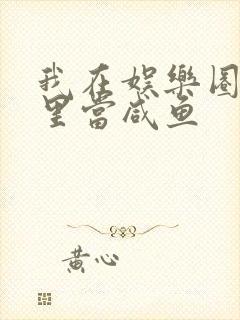 我在娱樂圈
里當咸魚
黄心